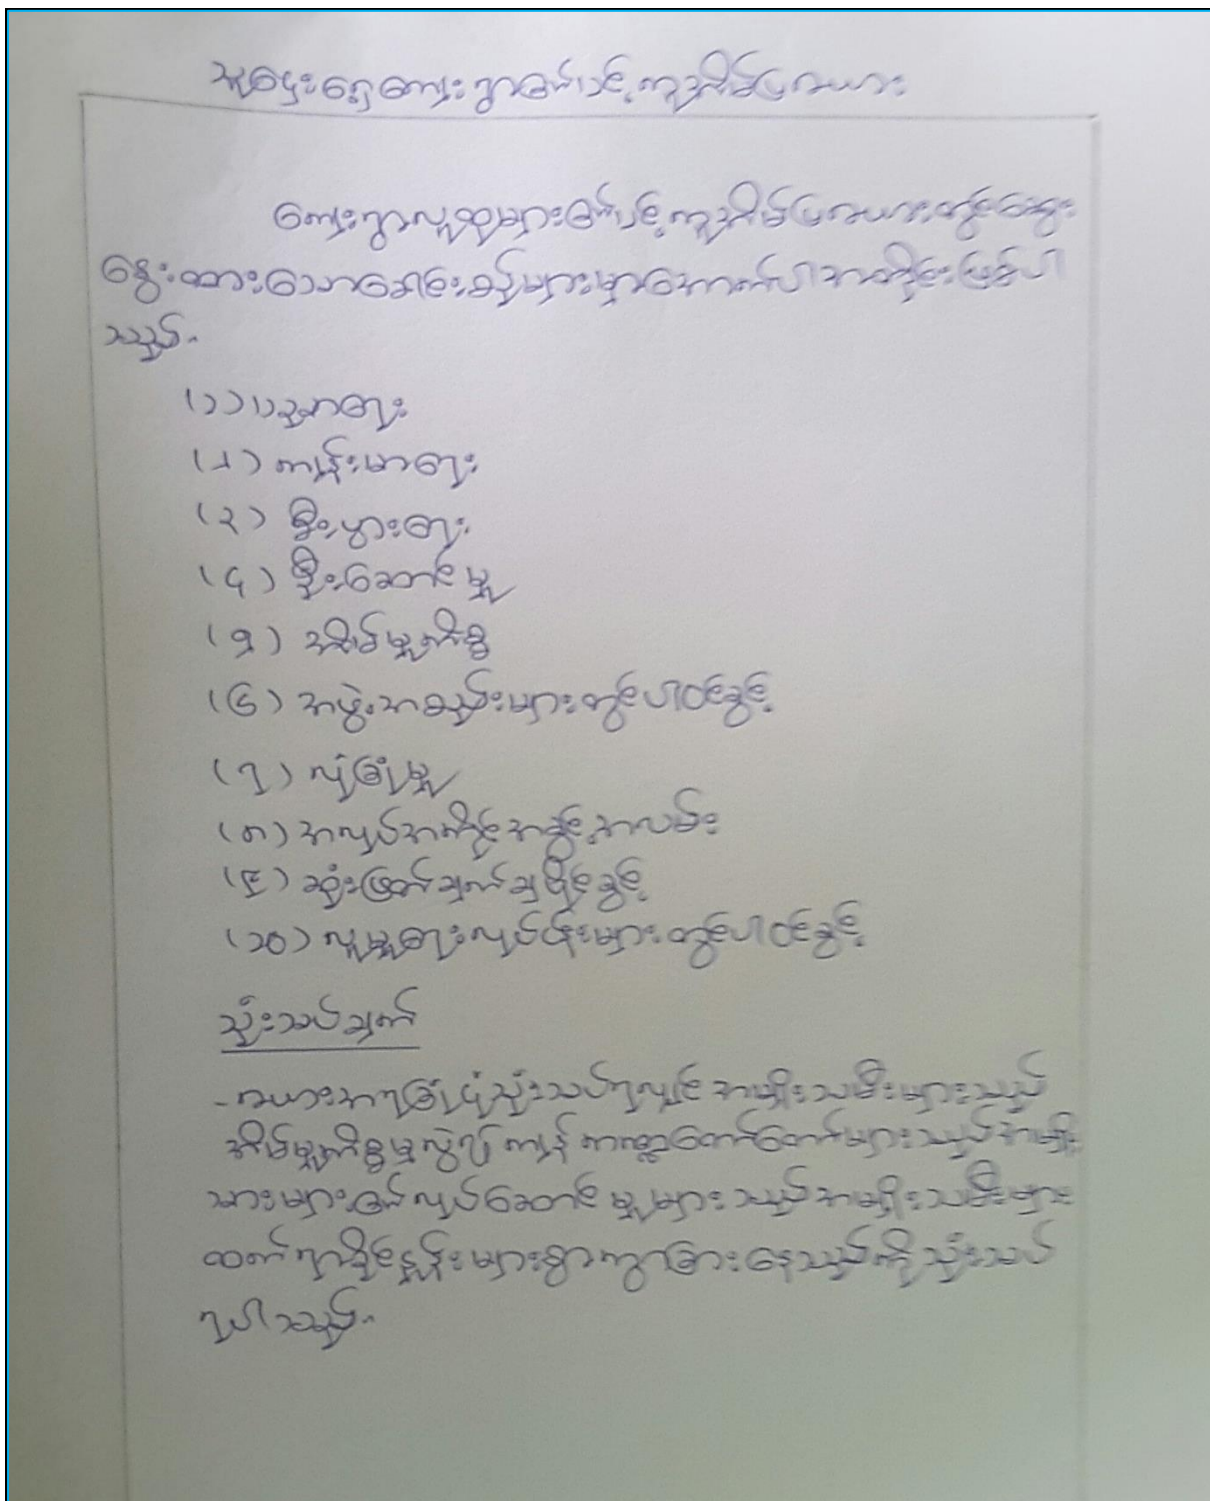 သူဌေးရွေကျေးရွာ၏ပင့်ကူအိမ်ပြဇယား
ကျေးရွာလူထုများ၏ပင့်ကူအိမ်ပြဇယားတွင်ဆွေး
နွေးထားသောခေါင်းစဉ်များမှာအောက်ပါအတိုင်းဖြစ်ပါ
သည်။
(၁) ပညာရေး
(၂) ကျန်းမာရေး
(၃) စီးပွားရေး
(၄) ဦးဆောင်မှု
(၅) အိမ်မှုကိစ္စ
(၆) အဖွဲ့အစည်းများတွင်ပါဝင်ခွင့်
(၇) လုံခြုံမှု
(၈) အလုပ်အကိုင်အခွင့်အလမ်း
(၉) ဆုံးဖြတ်ချက်ချပိုင်ခွင့်
(၁၀) လူမှုရေးလုပ်ငန်းများတွင်ပါဝင်ခွင့်
သုံးသပ်ချက်
- ဇယားအရခြုံငုံသုံးသပ်ရလျှင် အမျိုးသမီးများသည်
အိမ်မှုကိစ္စမှလွဲ၍ ကျန် ကဏ္ဍတော်တော်များသည်အမျိုး
သားများ၏လုပ်ဆောင်မှုများသည်အမျိုးသမီးများ
ထက်ရာခိုင်နှုန်းများစွာကွာခြားနေသည်ကိုသုံးသပ်
ရပါသည်။